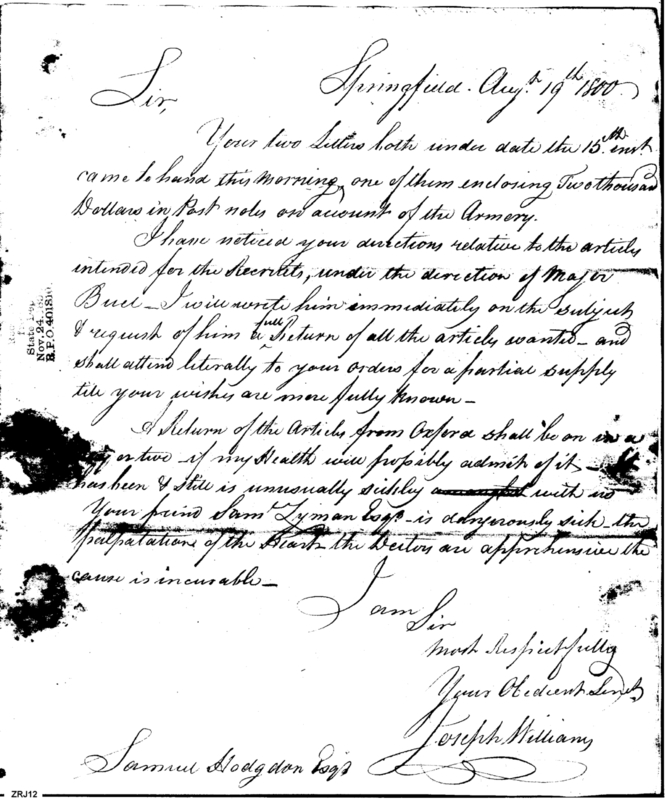 Springfield. Augt. 19th 1800
Sir,
Your two Letters both under date the 15th inst.
came to hand this Morning, one of them enclosing Two thousand
Dollars in Post notes on account of the Armory.
I have noticed your directions relative to the articles
intended for the Recruits, under the direction of Major
Buel – I will write him immediately on the subject
& request of him a full Return of all the articles wanted – and
shall attend literally to your orders for a partial supply
till your wishes are more fully known –
A Return of the Articles from Oxford shall be on in a
day or two – if my Health will possibly admit of it – It
has been & still is unusually sickly with us
Your friend Saml. Lyman Esqr. – is dangerously sick – the
palpatation of the Heart – the Doctors are apprehensive the
cause is incurable –
I am
Sir
Most Respectfully
Your Obedient Servt.
Joseph Williams
Samuel Hodgdon Esqr
State
Nov. 24.
B.P.O. 401810.
ZRJ12